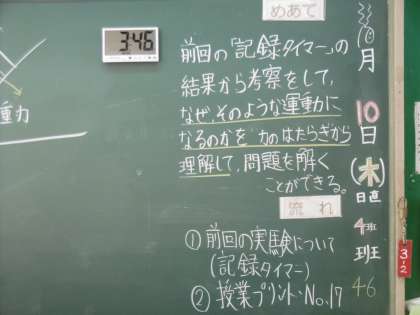 めあて
3:46
前回の「記録タイマー」の
結果から考察をして、
なぜ、そのような運動に
なるのかを 力のはたらきから
理解して、問題を解く
ことができる。
流れ
① 前回の実験について
(記録タイマー)
② 授業プリント・No.17
重力
月
10
日
(木)
日直
4班
班
46
3-2